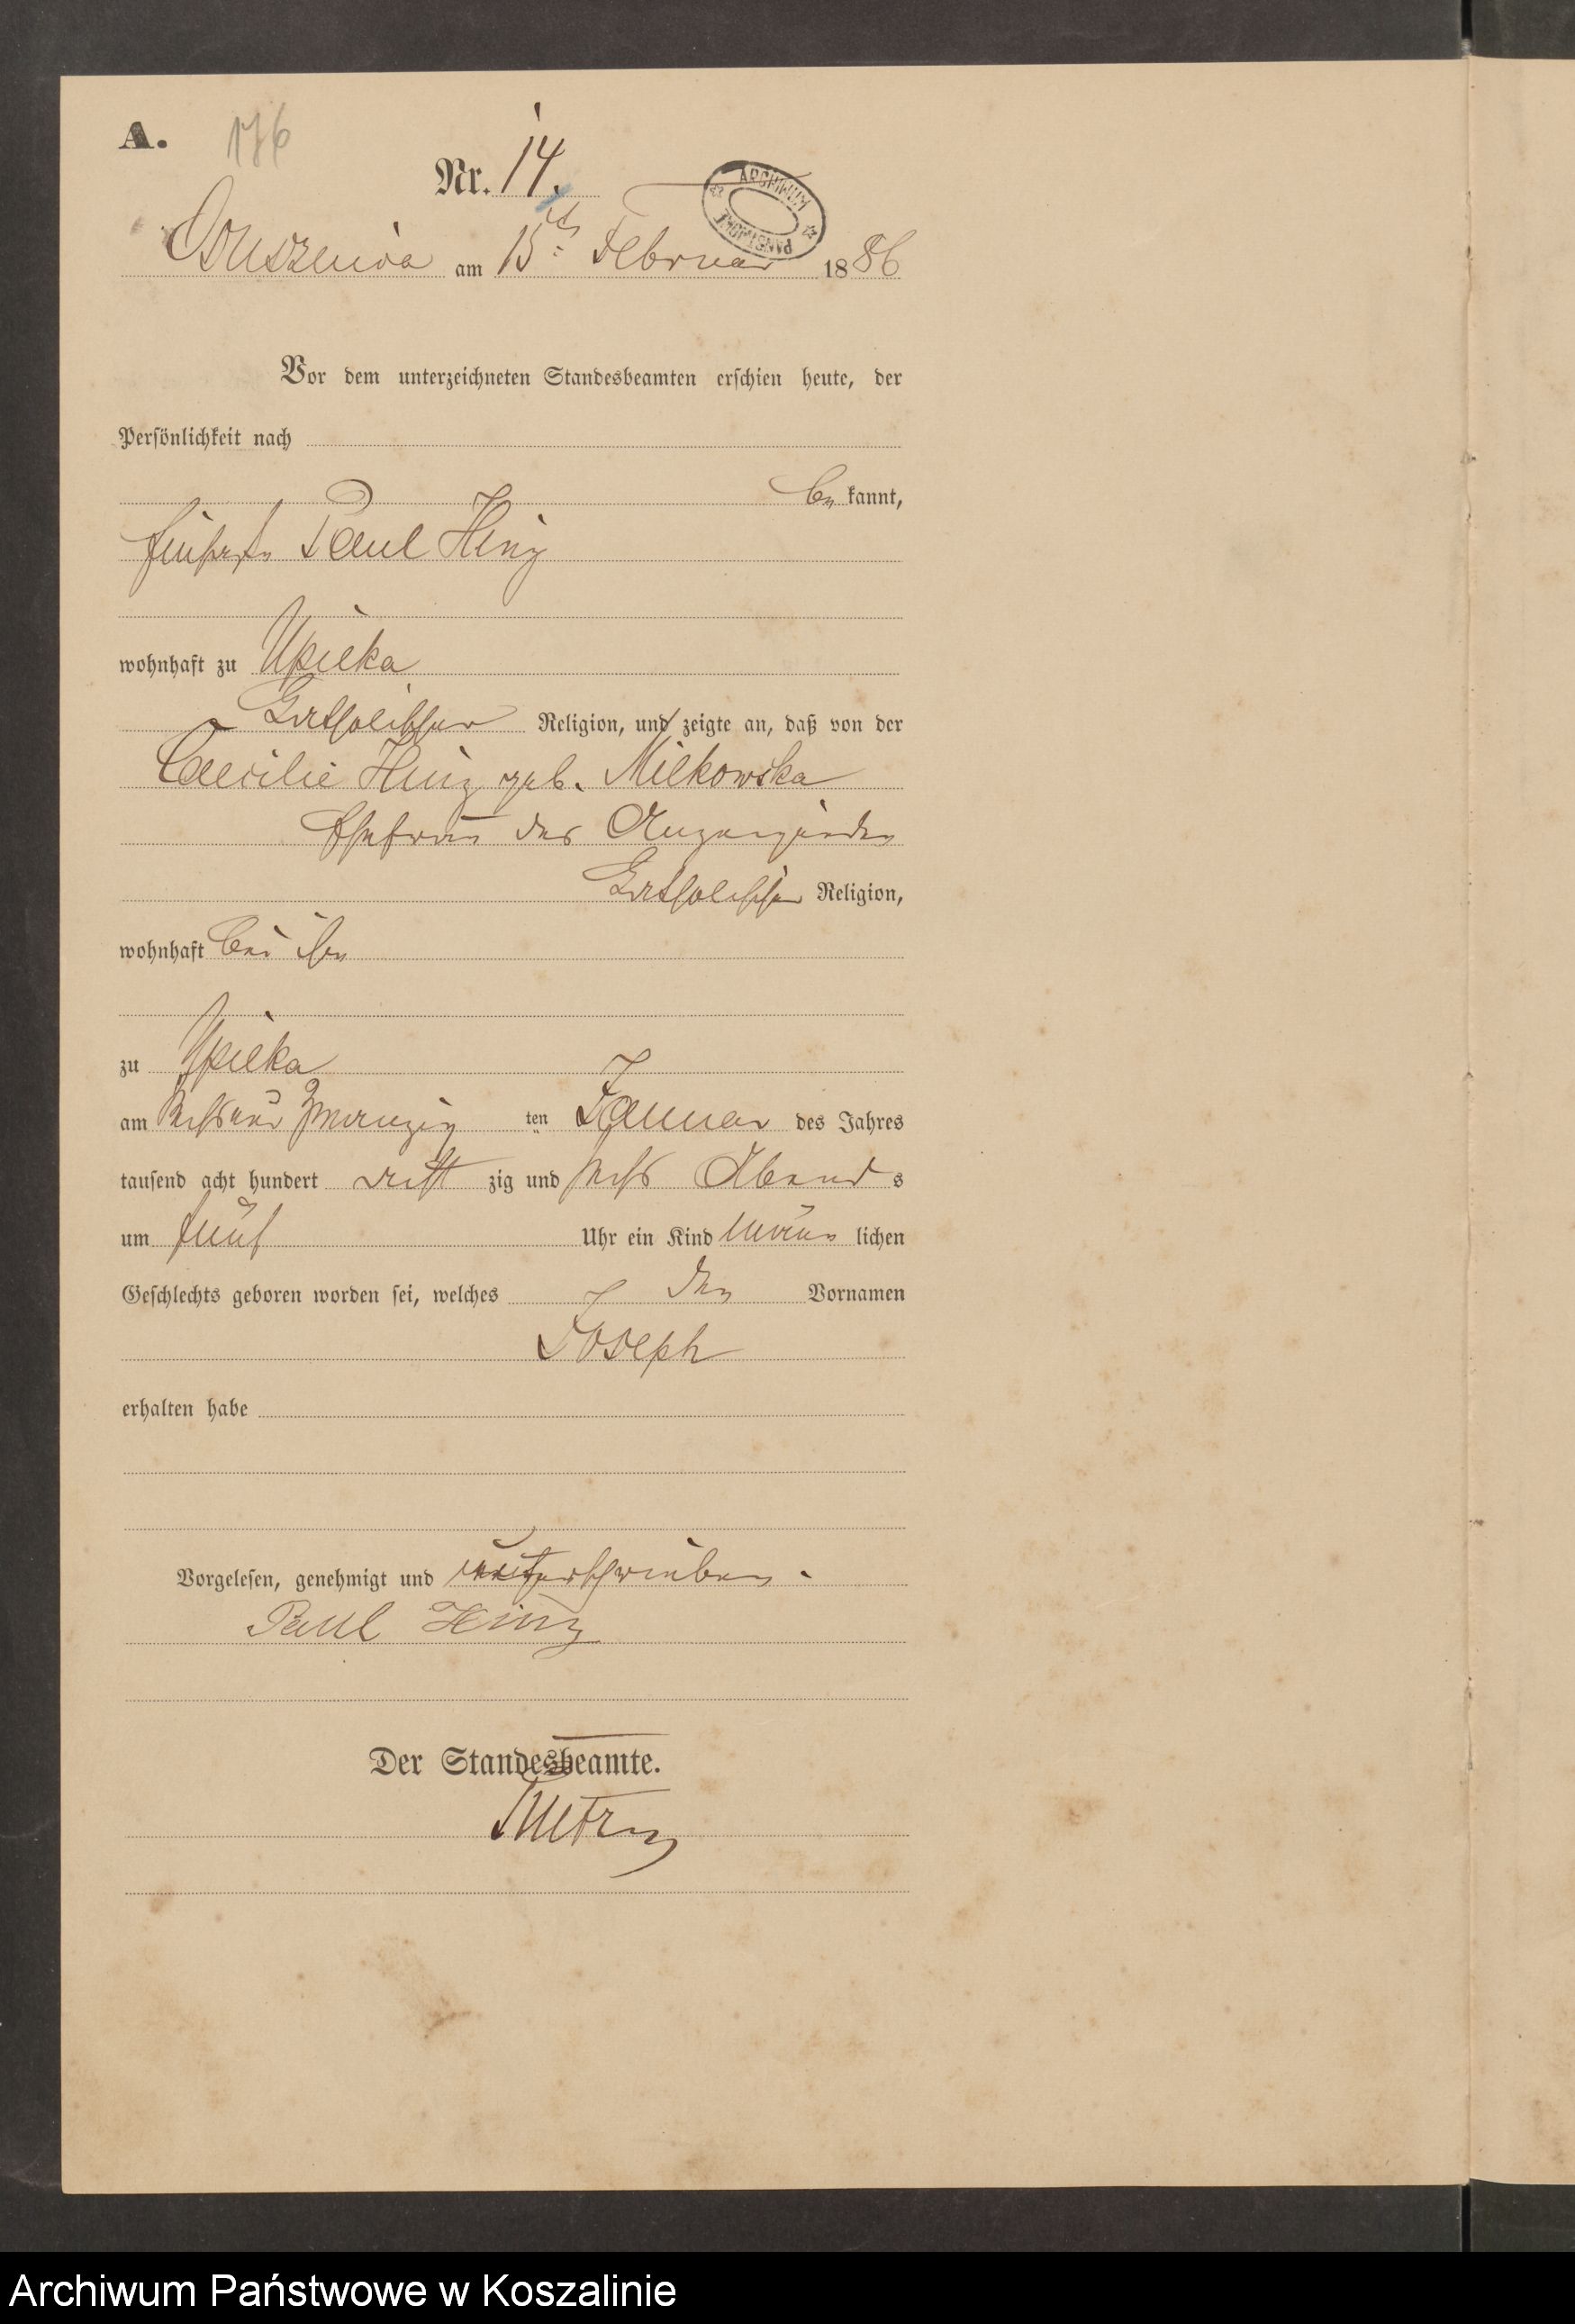 A. 176
Nr. 14.
ARCHIWUM PAŃSTWOWE
Osusznica am 15ten Februar 1886
Vor dem unterzeichneten Standesbeamten erschien heute, der
Persönlichkeit nach
be kannt,
Paul Hinz
wohnhaft zu Upilka
katholischer Religion, und zeigte an, daß von der
Caecilie Hinz geb. Milkowska
Ehefrau des Anzeigenden
katholischer Religion,
wohnhaft bei ihm
zu Upilka
am sechs und zwanzig ten Januar des Jahres
tausend acht hundert acht zig und sechs Abends
um fünf Uhr ein Kind männ lichen
Geschlechts geboren worden sei, welches den Vornamen
Joseph
erhalten habe
Vorgelesen, genehmigt und unterschrieben.
Paul Hinz
Der Standesbeamte.
Archiwum Państwowe w Koszalinie